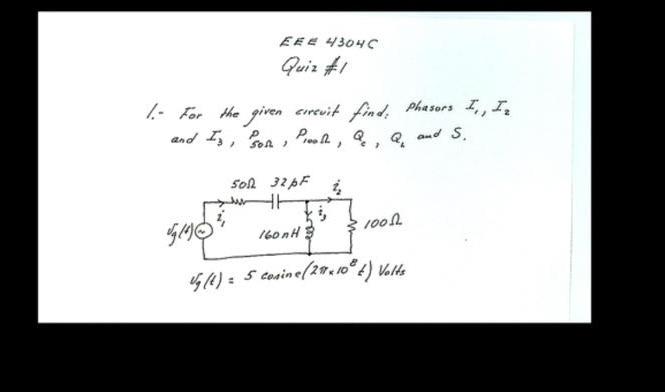 EEE 4304C
Quiz #1
1.- For the given circuit find: Phasors I₁, I₂
and I₃, P₅₀Ω, P₁₀₀Ω, Q_c, Q_L and S.
50Ω 32pF i₂
i₁ i₃
v_g(t) 160nH 100Ω
v_g(t) = 5 cosine(2π×10⁸t) Volts